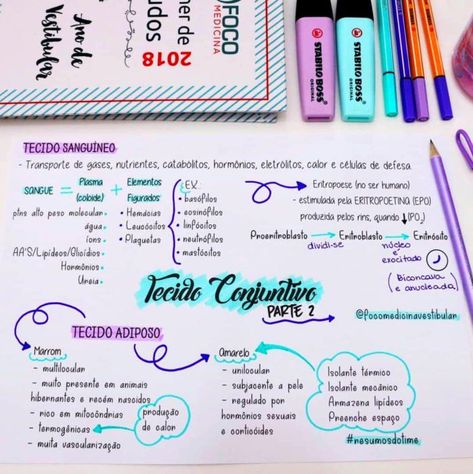 FOCO
MEDICINA
2018
Ano de
Vestibular
STABILO BOSS
ORIGINAL
STABILO BOSS
ORIGINAL
TECIDO SANGUÍNEO
- Transporte de gases, nutrientes, catabólitos, hormônios, eletrólitos, calor e células de defesa
SANGUE = Plasma (coloide) + Elementos Figurados
ptns alto peso molecular
água
íons
AA'S/Lipídeos/Glicídios
Hormônios
Ureia
• Hemácias
• Leucócitos
• Plaquetas
EX.
• basófilos
• eosinófilos
• linfócitos
• neutrófilos
• mastócitos
Eritropoese (no ser humano)
- estimulada pela ERITROPOETINA (EPO)
produzida pelos rins, quando ↓(PO₂)
Proeritroblasto → Eritroblasto → Eritrócito
dividi-se
núcleo
é
exocitado
(Bicôncava
e anucleada)
Tecido Conjuntivo
PARTE 2
@focomedicinavestibular
TECIDO ADIPOSO
Marrom
- multilocular
- muito presente em animais
hibernantes e recém nascidos
- rico em mitocôndrias
- termogênicas
- muita vascularização
produção
de calor
Amarelo
- unilocular
- subjacente a pele
- regulado por
hormônios sexuais
e corticóides
Isolante térmico
Isolante mecânico
Armazena lipídeos
Preenche espaço
#resumosdotime